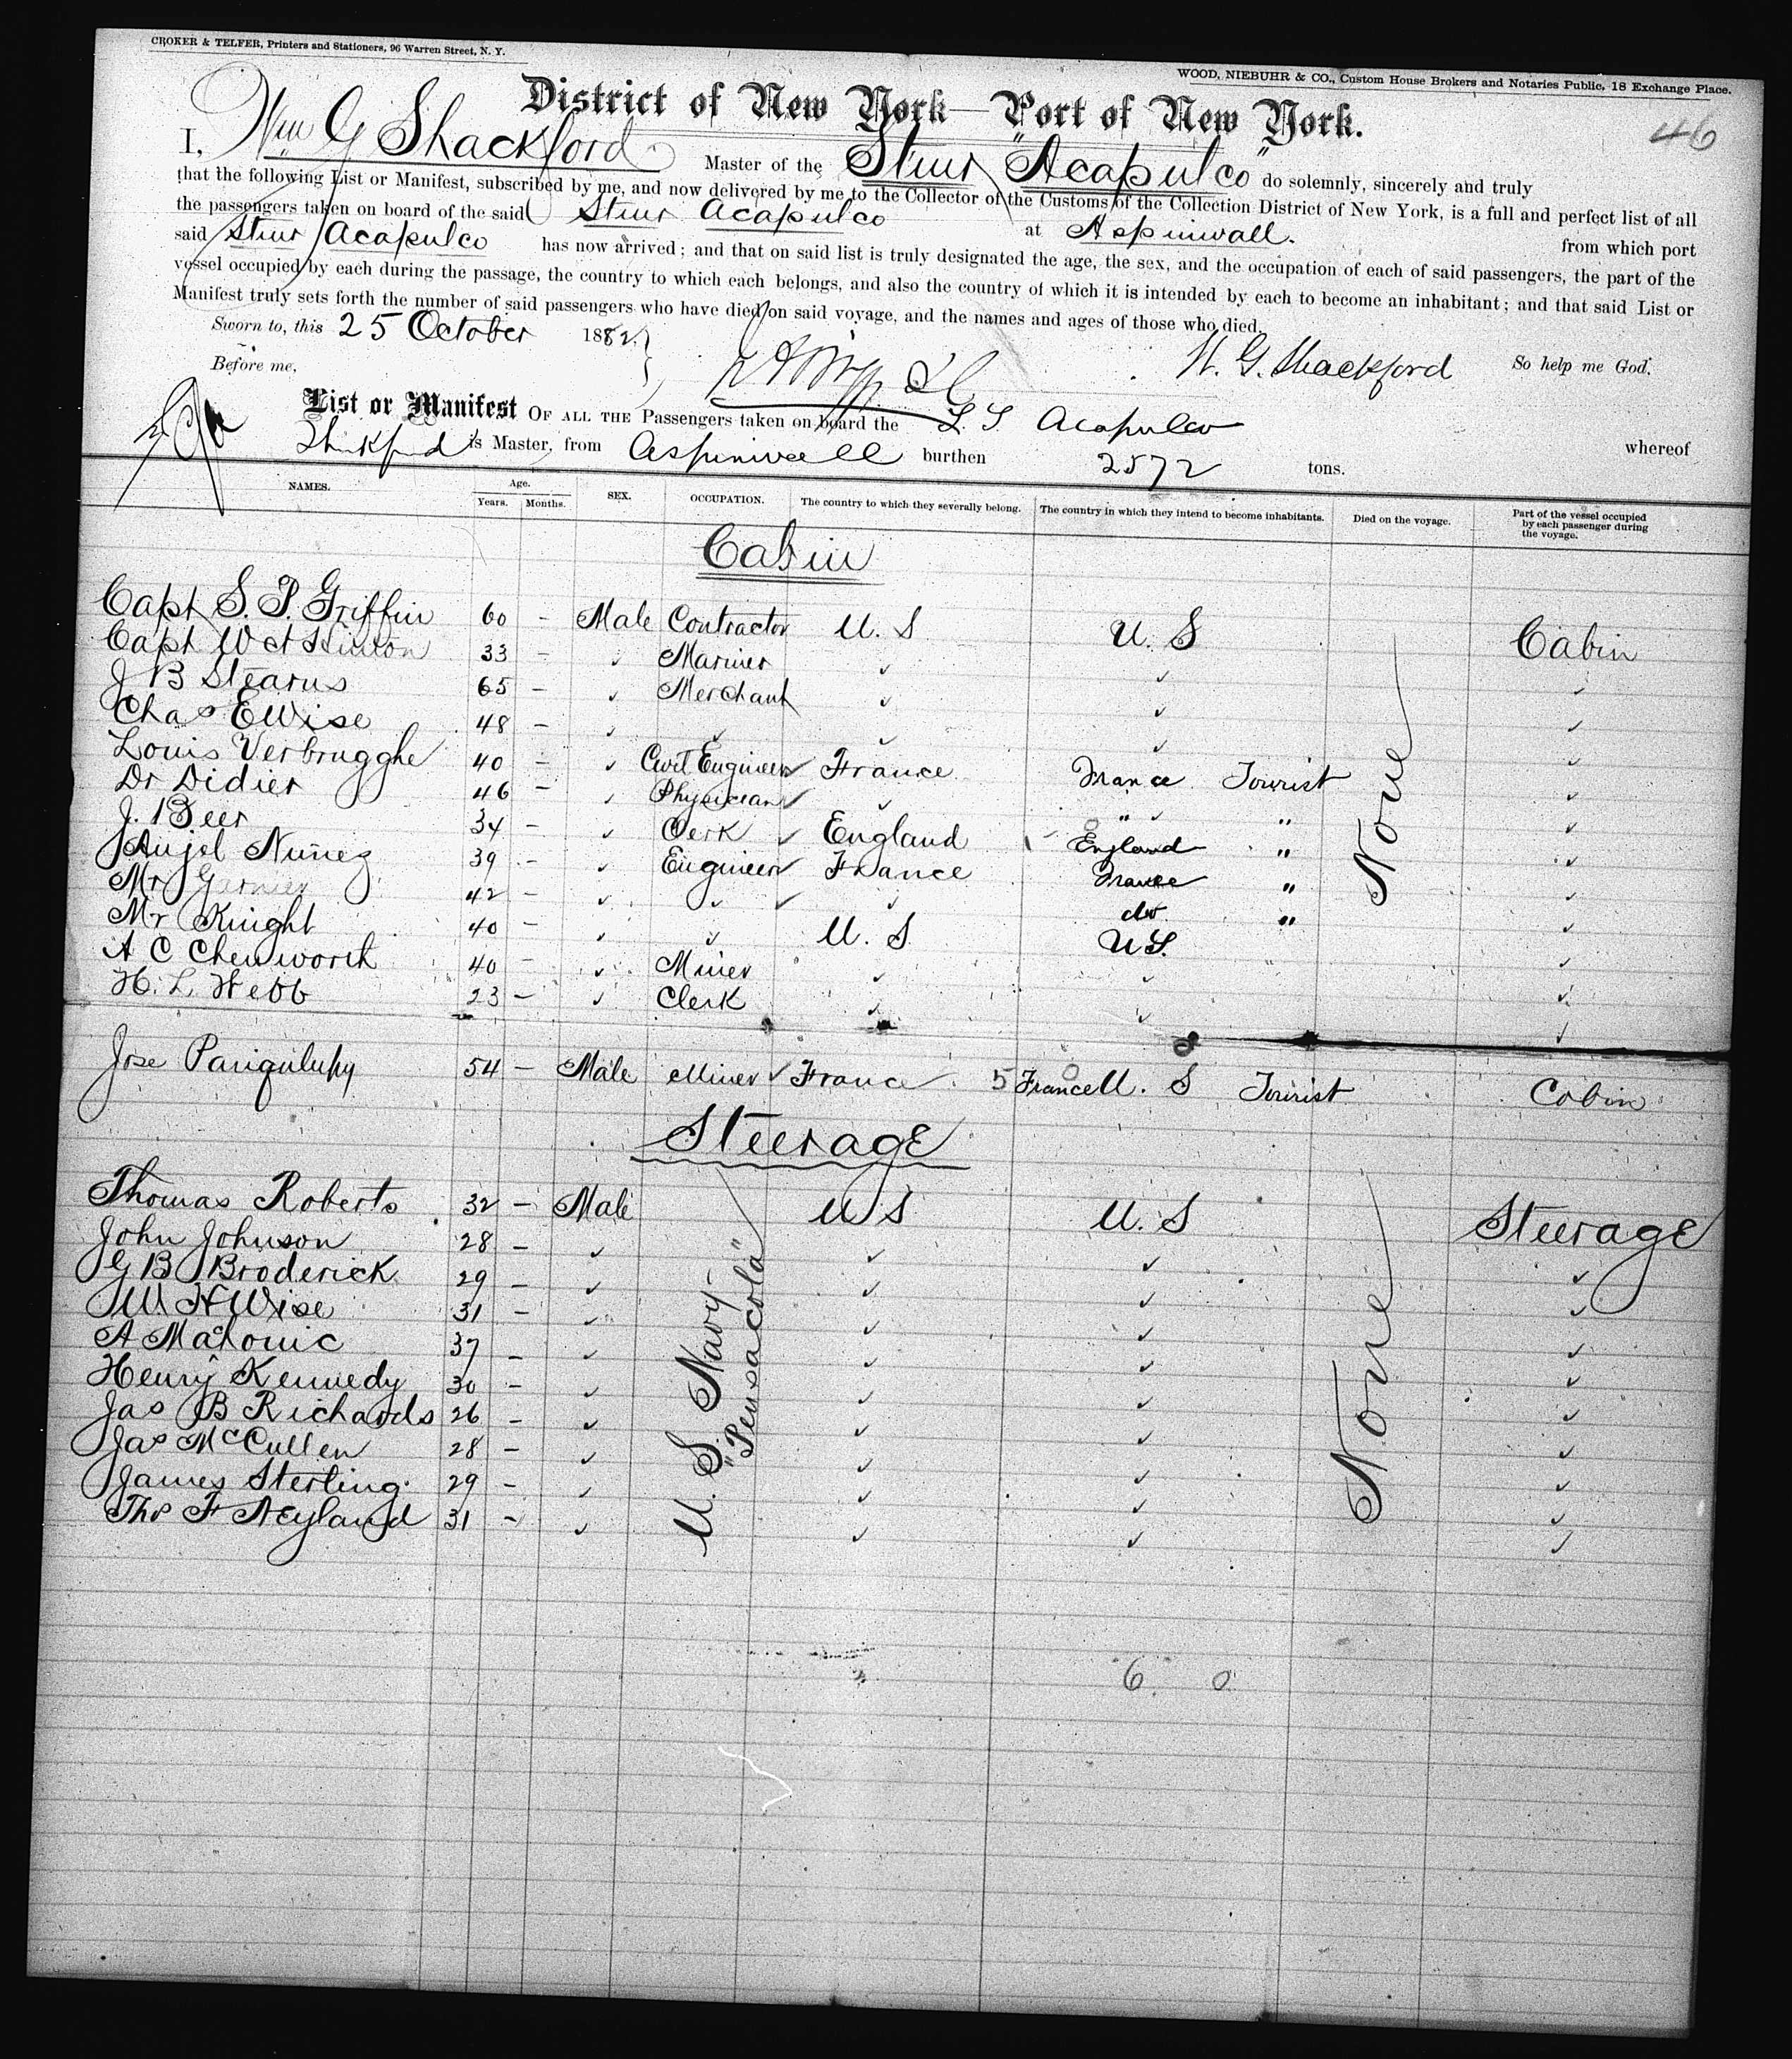 CROKER & TELFER, Printers and Stationers, 96 Warren Street, N. Y.
WOOD, NIEBUHR & CO., Custom House Brokers and Notaries Public, 18 Exchange Place.
District of New York—Port of New York.
46
I, Wm G Shackford Master of the Stmr "Acapulco" do solemnly, sincerely and truly
that the following List or Manifest, subscribed by me, and now delivered by me to the Collector of the Customs of the Collection District of New York, is a full and perfect list of all
the passengers taken on board of the said Stmr Acapulco at Aspinwall. from which port
said Stmr Acapulco has now arrived; and that on said list is truly designated the age, the sex, and the occupation of each of said passengers, the part of the
vessel occupied by each during the passage, the country to which each belongs, and also the country of which it is intended by each to become an inhabitant; and that said List or
Manifest truly sets forth the number of said passengers who have died on said voyage, and the names and ages of those who died.
Sworn to, this 25 October 1882.
Before me, W. G. Shackford So help me God.
List or Manifest OF ALL THE Passengers taken on board the S. S. Acapulco whereof
Shackford is Master, from Aspinwall burthen 2572 tons.
NAMES. Age. Years. Months. SEX. OCCUPATION. The country to which they severally belong. The country in which they intend to become inhabitants. Died on the voyage. Part of the vessel occupied by each passenger during the voyage.
Cabin
Capt S. P. Griffin 60 - Male Contractor U. S U. S Cabin
Capt 33 - ✓ Mariner ✓ ✓ ✓
J B Stearns 65 - ✓ Merchant ✓ ✓ ✓
Chas E Wise 48 - ✓ ✓ ✓ ✓ ✓
Louis Verbrugghe 40 - ✓ Civil Engineer ✓ France France Tourist ✓
Dr Didier 46 - ✓ Physician ✓ ✓ " ✓ " ✓
J. Beer 34 - ✓ Clerk ✓ England England " ✓
Anjel Nuñez 39 - ✓ Engineer ✓ France France " ✓
Mr 42 - ✓ ✓ ✓ ✓ do " ✓
Mr Knight 40 - ✓ ✓ U. S. U S. ✓
A C Chenworth 40 - ✓ Miner ✓ ✓ ✓
H. L. Webb 23 - ✓ Clerk ✓ ✓ ✓
None
Jose 54 - Male Miner ✓ France 5 France U. S Tourist Cabin
Steerage
Thomas Roberts 32 - Male U S U. S Steerage
John Johnson 28 - ✓ ✓ ✓ ✓
G B Broderick 29 - ✓ ✓ ✓ ✓
W. H Wise 31 - ✓ ✓ ✓ ✓
A 37 - ✓ ✓ ✓ ✓
Henry Kennedy 30 - ✓ ✓ ✓ ✓
Jas B Richards 26 - ✓ ✓ ✓ ✓
Jas McCullen 28 - ✓ ✓ ✓ ✓
James Sterling 29 - ✓ ✓ ✓ ✓
Thos F Neyland 31 - ✓ ✓ ✓ ✓
U. S. Navy
"Pensacola"
None
6 0